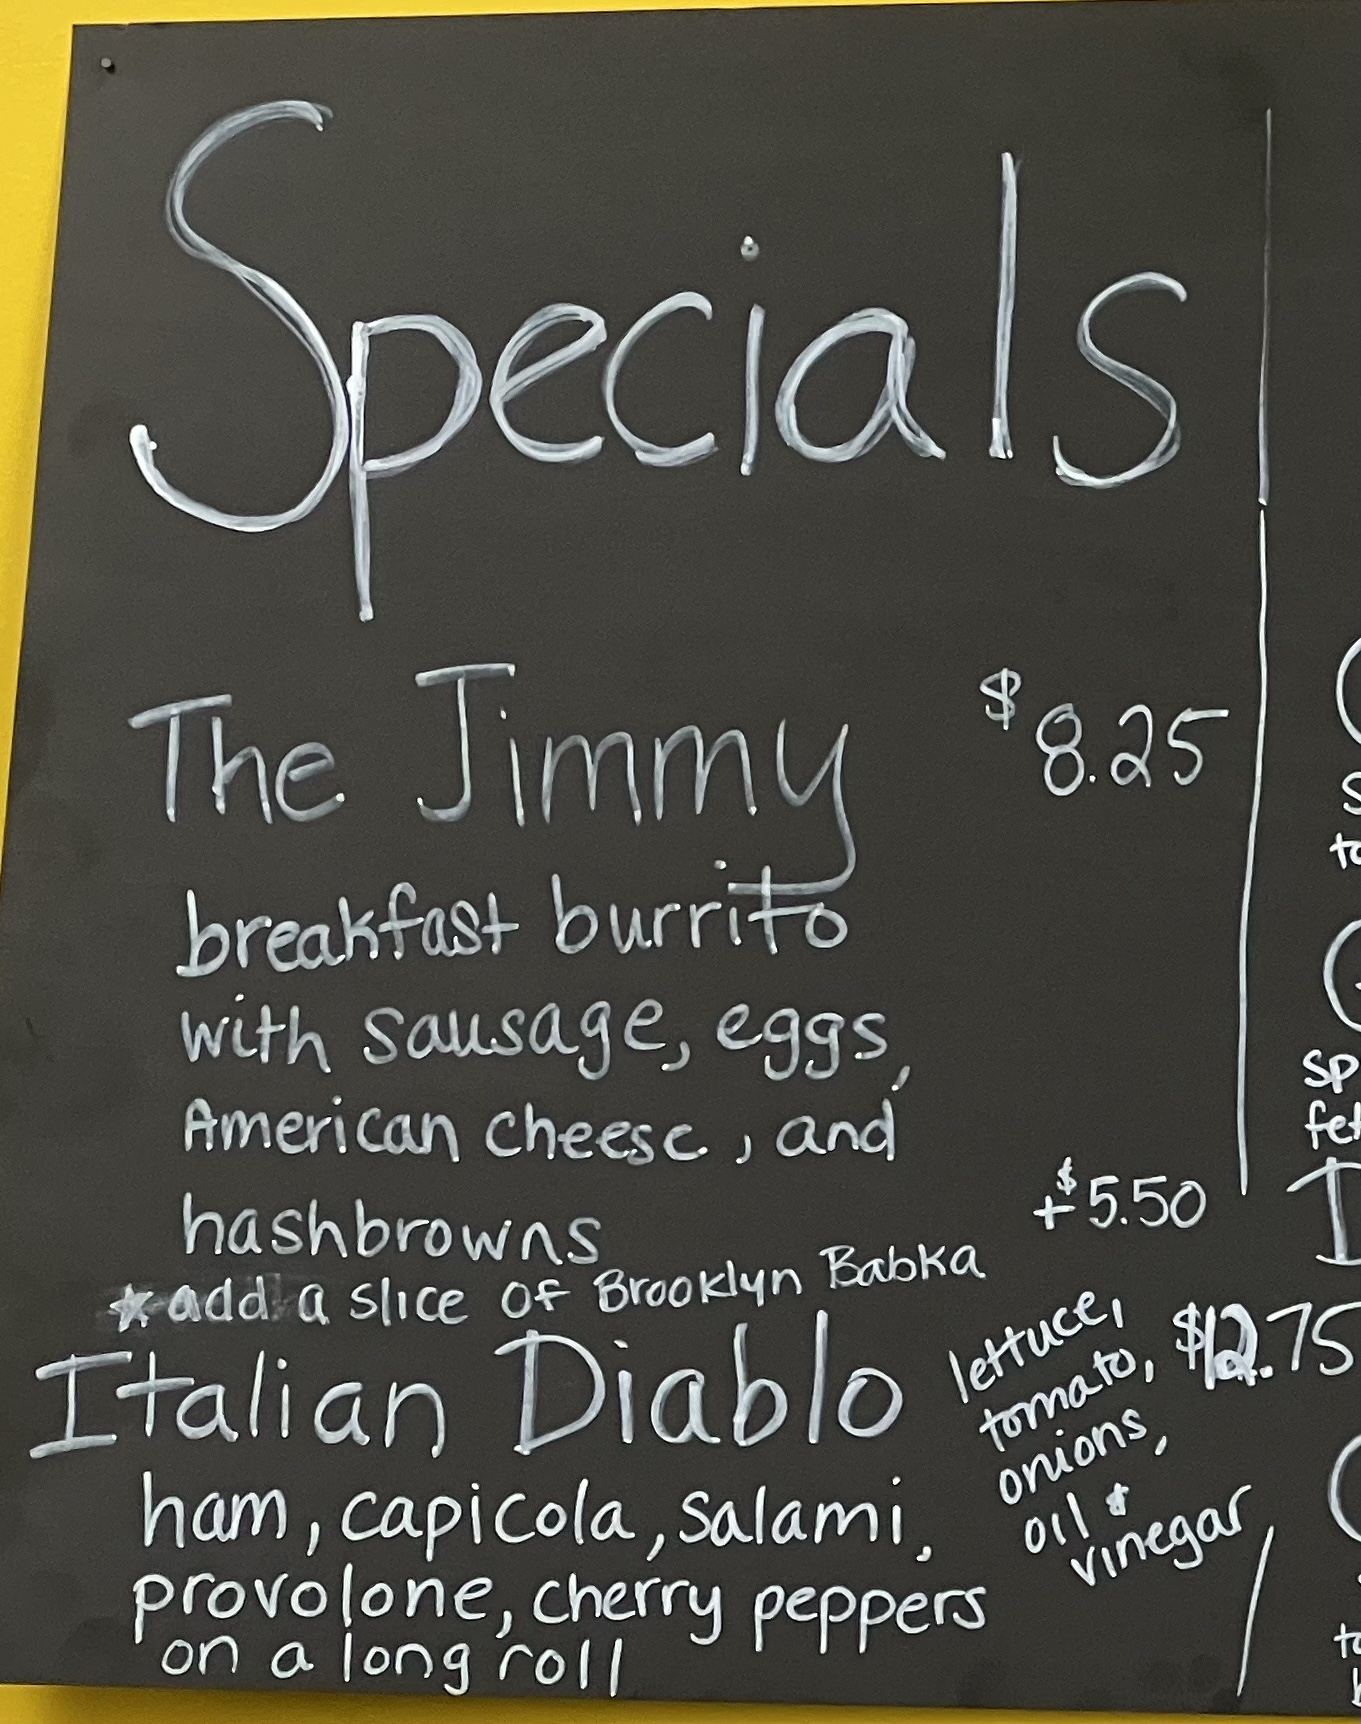 Specials
The Jimmy $8.25
breakfast burrito
with sausage, eggs,
American cheese, and
hashbrowns
+$5.50
*add a slice of Brooklyn Babka
Italian Diablo $12.75
ham, capicola, salami,
provolone, cherry peppers
on a long roll
lettuce,
tomato,
onions,
oil &
vinegar
s
to
sp
fet